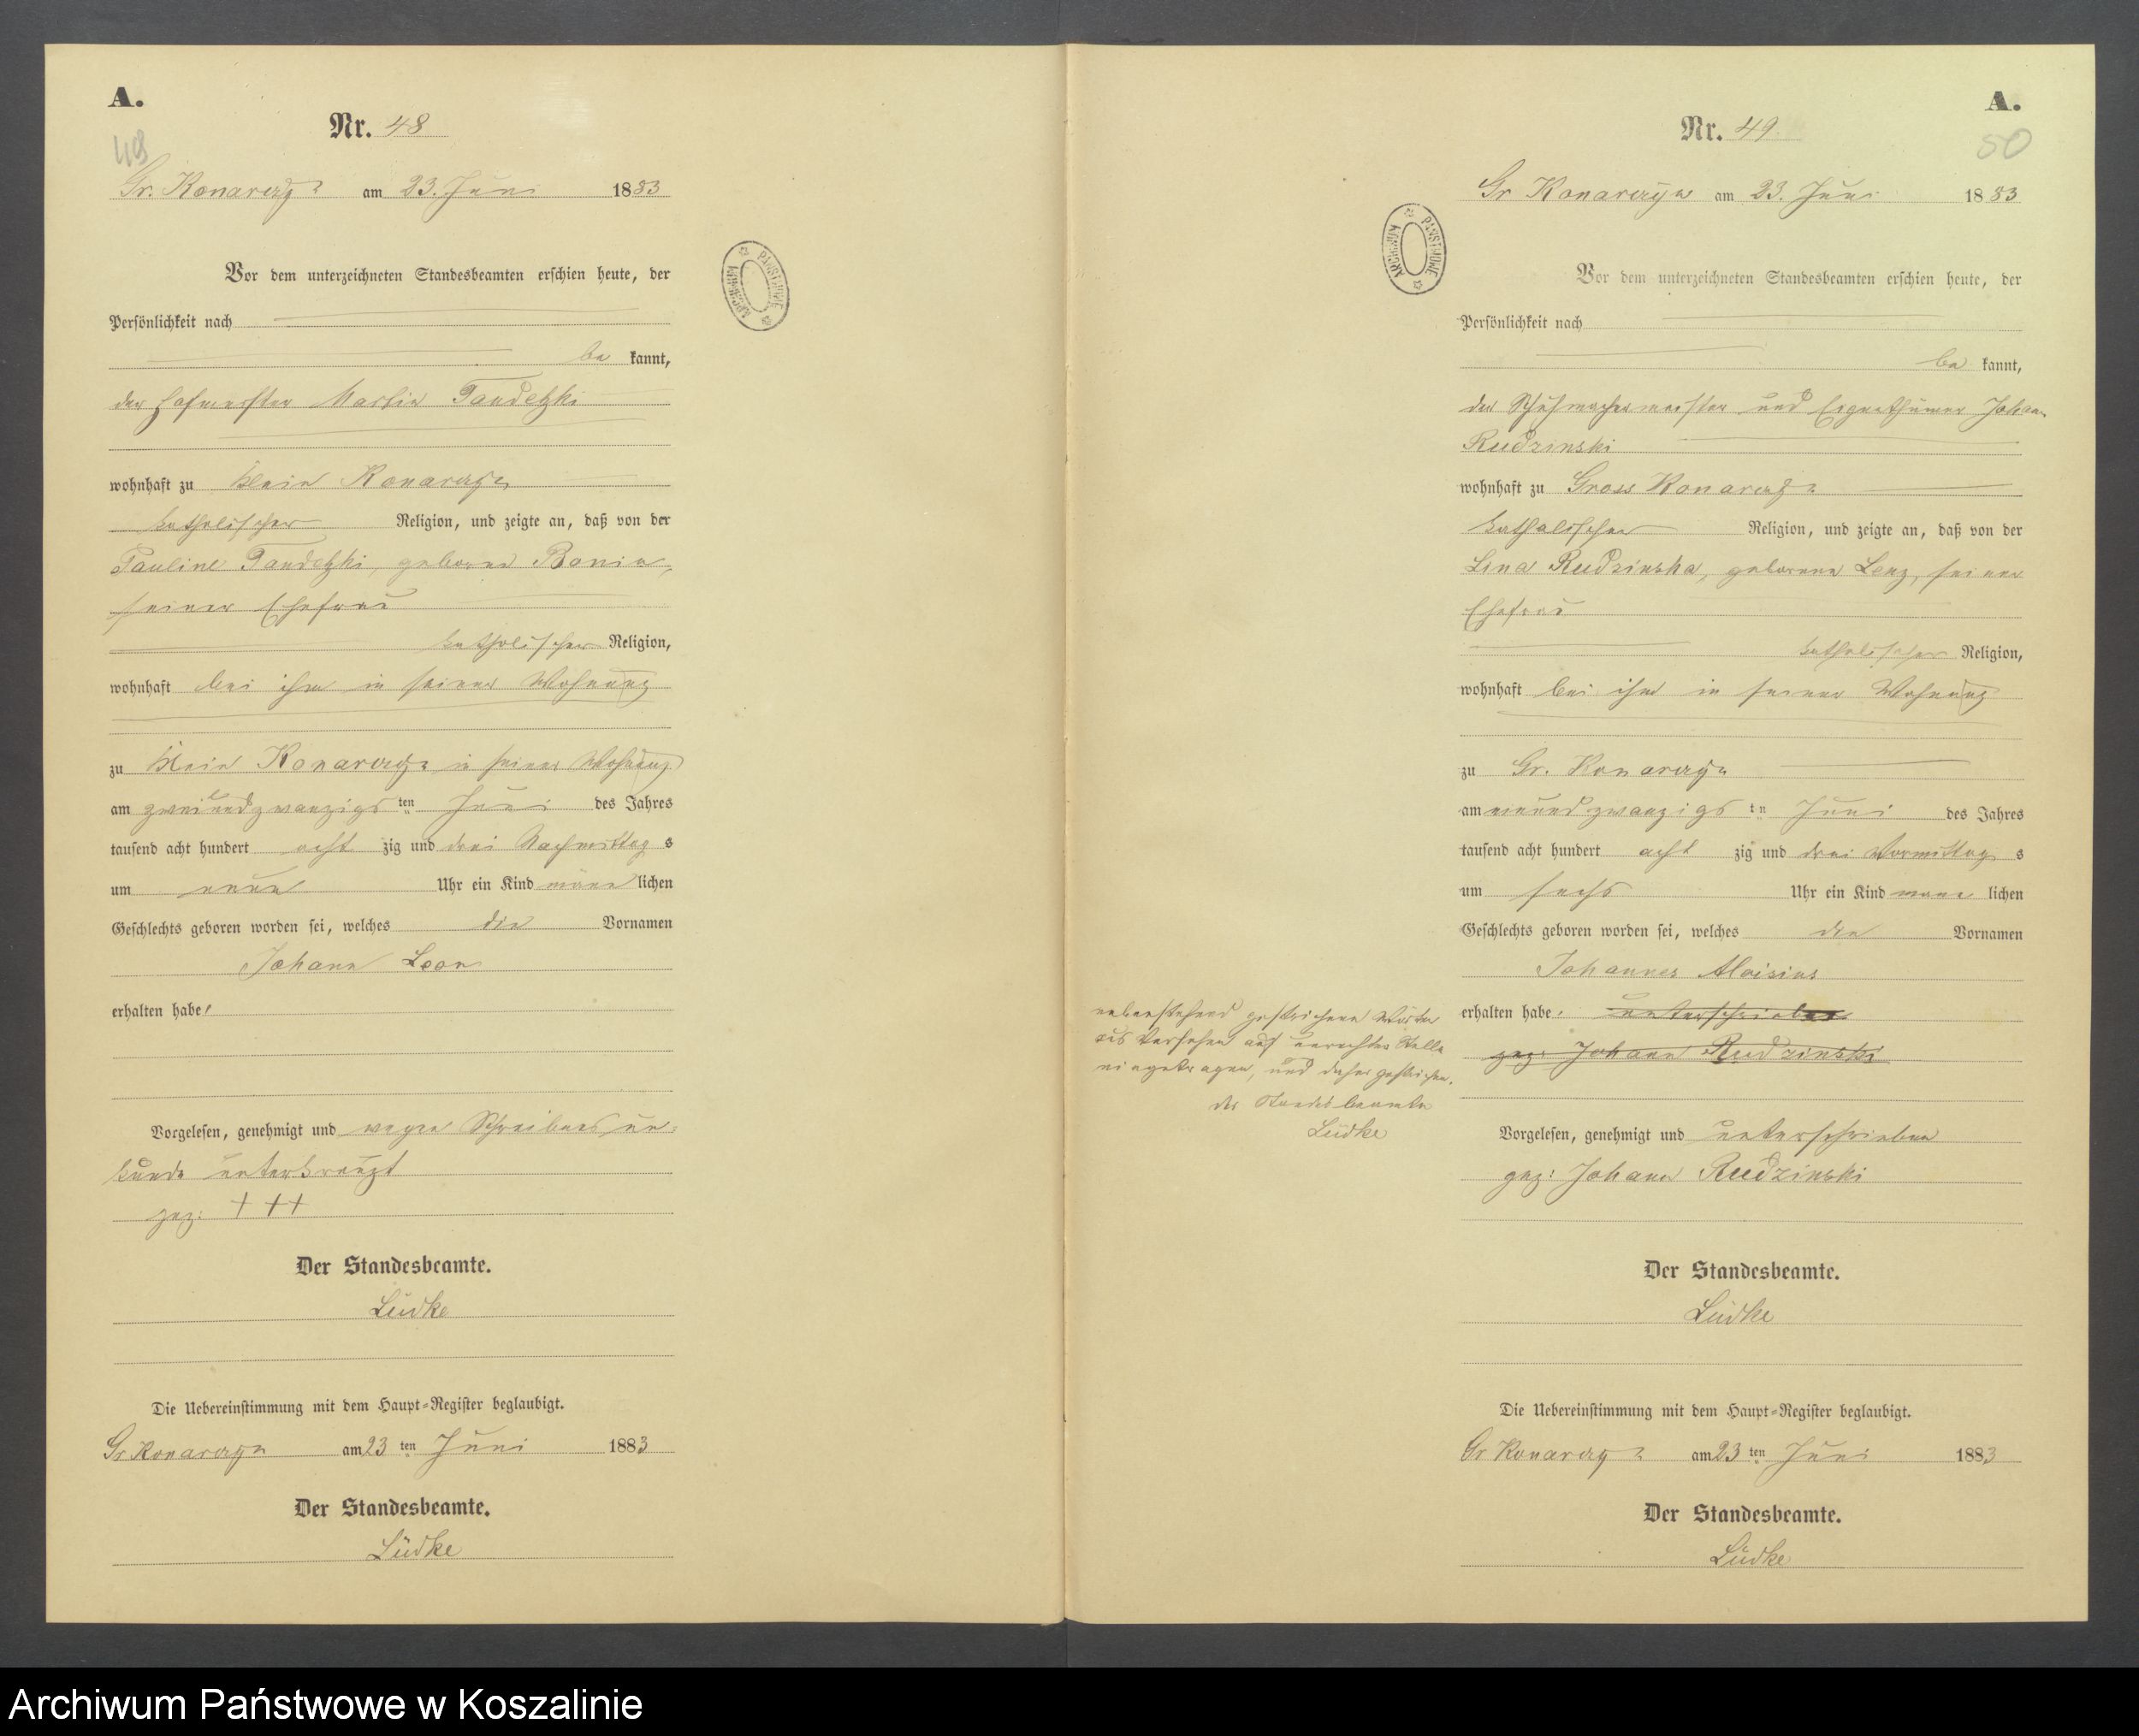 A.
48
Nr. 48
Gr. Konarczyn am 23. Juni 1883
Vor dem unterzeichneten Standesbeamten erschien heute, der
Persönlichkeit nach
be kannt,
der Hofmeister Martin Tandetzki
wohnhaft zu Klein Konarczyn
katholischer Religion, und zeigte an, daß von der
Pauline Tandetzki, geborne Bonin,
seiner Ehefrau
katholischer Religion,
wohnhaft bei ihm in seiner Wohnung
zu Klein Konarczyn in seiner Wohnung
am zweiundzwanzigsten Juni des Jahres
tausend acht hundert acht zig und drei Nachmittag s
um neun Uhr ein Kind männ lichen
Geschlechts geboren worden sei, welches die Vornamen
Johann Leon
erhalten habe.
Vorgelesen, genehmigt und wegen Schreibensun-
kunde unterkreuzt
gez: +++
Der Standesbeamte.
Lüdke
Die Uebereinstimmung mit dem Haupt-Register beglaubigt.
Gr Konarczyn am 23 ten Juni 1883
Der Standesbeamte.
Lüdke
A.
50
Nr. 49.
Gr Konarczyn am 23. Juni 1883
Vor dem unterzeichneten Standesbeamten erschien heute, der
Persönlichkeit nach
be kannt,
der Schuhmachermeister und Eigenthümer Johann
Rudzinski
wohnhaft zu Gross Konarczyn
katholischer Religion, und zeigte an, daß von der
Lina Rudzinska, geborene Lenz, seiner
Ehefrau
katholischer Religion,
wohnhaft bei ihm in seiner Wohnung
zu Gr. Konarczyn
am einundzwanzigs tn Juni des Jahres
tausend acht hundert acht zig und drei Vormittag s
um sechs Uhr ein Kind männ lichen
Geschlechts geboren worden sei, welches die Vornamen
Johannes Aloisius
erhalten habe. unterschrieben
gez: Johann Rudzinski
nebenstehend gestrichene Wörter
aus Versehen auf unrechter Stelle
eingetragen, und daher gestrichen.
der Standesbeamte
Lüdke
Vorgelesen, genehmigt und unterschrieben
gez: Johann Rudzinski
Der Standesbeamte.
Lüdke
Die Uebereinstimmung mit dem Haupt-Register beglaubigt.
Gr Konarczyn am 23 ten Juni 1883
Der Standesbeamte.
Lüdke
ARCHIWUM PAŃSTWOWE
ARCHIWUM PAŃSTWOWE
Archiwum Państwowe w Koszalinie